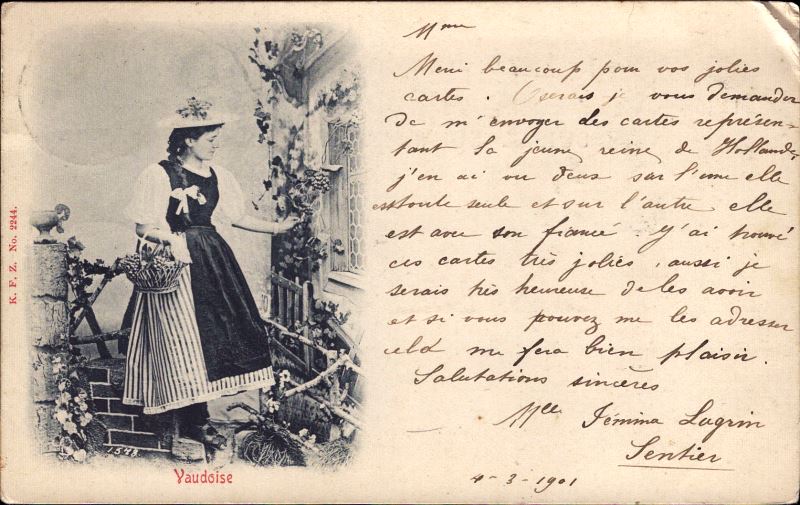 K. F. Z. No. 2244.
1573
Vaudoise
Mme
Merci beaucoup pour vos jolies
cartes. Oserais je vous demander
de m'envoyer des cartes représen-
tant la jeune reine de Hollande,
j'en ai vu deux sur l'une elle
est toute seule et sur l'autre elle
est avec son fiancé. J'ai trouvé
ces cartes très jolies, aussi je
serais très heureuse de les avoir
et si vous pouvez me les adresser
cela me fera bien plaisir.
Salutations sincères
Mlle Jémina Lugrin
Sentier
4-3-1901